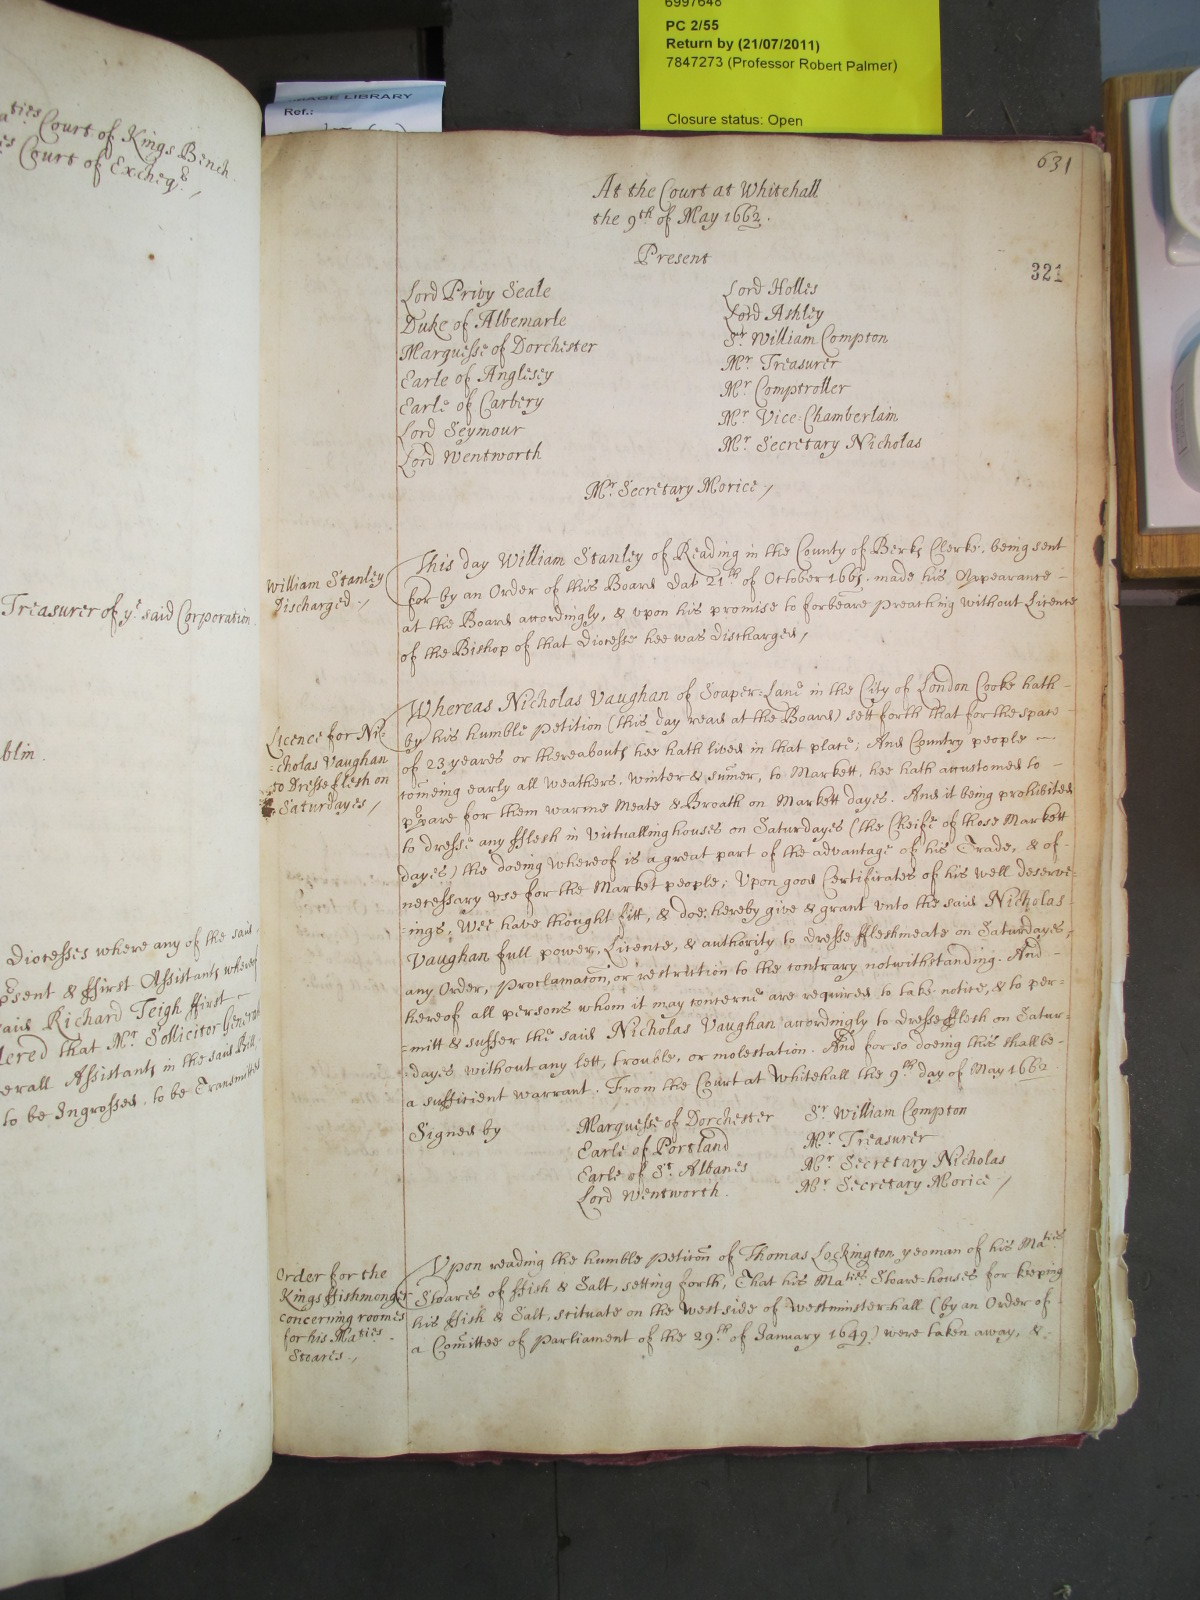 6997648
PC 2/55
Return by (21/07/2011)
7847273 (Professor Robert Palmer)
Closure status: Open
IMAGE LIBRARY
Ref.:
aties Court of Kings Bench
Court of Excheqr
Treasurer of ye said Corporation.
blin.
Diocesses where any of the said
psent & ffirst Assistants where
said Richard Teigh ffirst
dered that Mr Sollicitor Generall
erall Assistants in the said Bill
to be Ingrossed, to be Transmitted
631
At the Court at Whitehall
the 9th of May 1662.
Present
321
Lord Privy Seale
Duke of Albemarle
Marquesse of Dorchester
Earle of Anglesey
Earle of Carbery
Lord Seymour
Lord Wentworth
Lord Holles
Lord Ashley
Sr William Compton
Mr Treasurer
Mr Comptroller
Mr Vice-Chamberlain
Mr Secretary Nicholas
Mr Secretary Morice /
William Stanley
discharged /
This day William Stanley of Reading in the County of Berks Clerke, being sent
for by an Order of this Board Dat 21th of October 1661. made his Appearance -
at the Board accordingly, & upon his promise to forbeare preaching without Licence
of the Bishop of that Diocesse hee was discharged /
Licence for Ni-
=cholas Vaughan
to dresse flesh on
Saturdayes /
Whereas Nicholas Vaughan of Soaper=Lane in the City of London Cooke hath -
by his humble Petition (this day read at the Board) sett forth that for the space -
of 23 yeares or thereabouts hee hath lived in that place; And Country people -
comeing early all weathers, winter & sumer, to Markett, hee hath accustomed to -
ppare for them warme Meate & Broath on Markett dayes. And it being prohibited
to dresse any fflesh in Victualling houses on Saturdayes (the Cheife of those Markett
dayes) the doeing whereof is a great part of the advantage of his Trade, & of -
necessary use for the Market people; Upon good Certificates of his well deserve-
=ings, Wee have thought fitt, & doe hereby give & grant unto the said Nicholas -
Vaughan full power, Licence, & authority to dresse ffleshmeate on Saturdayes,
any Order, Proclamaton, or restriction to the contrary notwithstanding. And -
hereof all persons whom it may concerne are required to take notice, & to per=
=mitt & suffer the said Nicholas Vaughan accordingly to dresse fflesh on Satur=
=dayes without any lett, trouble, or molestation. And for so doeing this shall be -
a sufficient warrant. From the Court at Whitehall the 9th day of May 1662
Signed by
Marquesse of Dorchester
Earle of Portland
Earle of St Albanes
Lord Wentworth.
Sr William Compton
Mr Treasurer
Mr Secretary Nicholas
Mr Secretary Morice /
Order for the
Kings ffishmonger
concerning roomes
for his Maties
Stoares /
Upon reading the humble Peticon of Thomas Lockington yeoman of his Maties
Stoares of ffish & Salt, setting forth, That his Maties Stoare-houses for keeping
his ffish & Salt, scituate on the West side of Westminster-hall (by an Order of -
a Comittee of Parliament of the 29th of January 1649) were taken away, & -